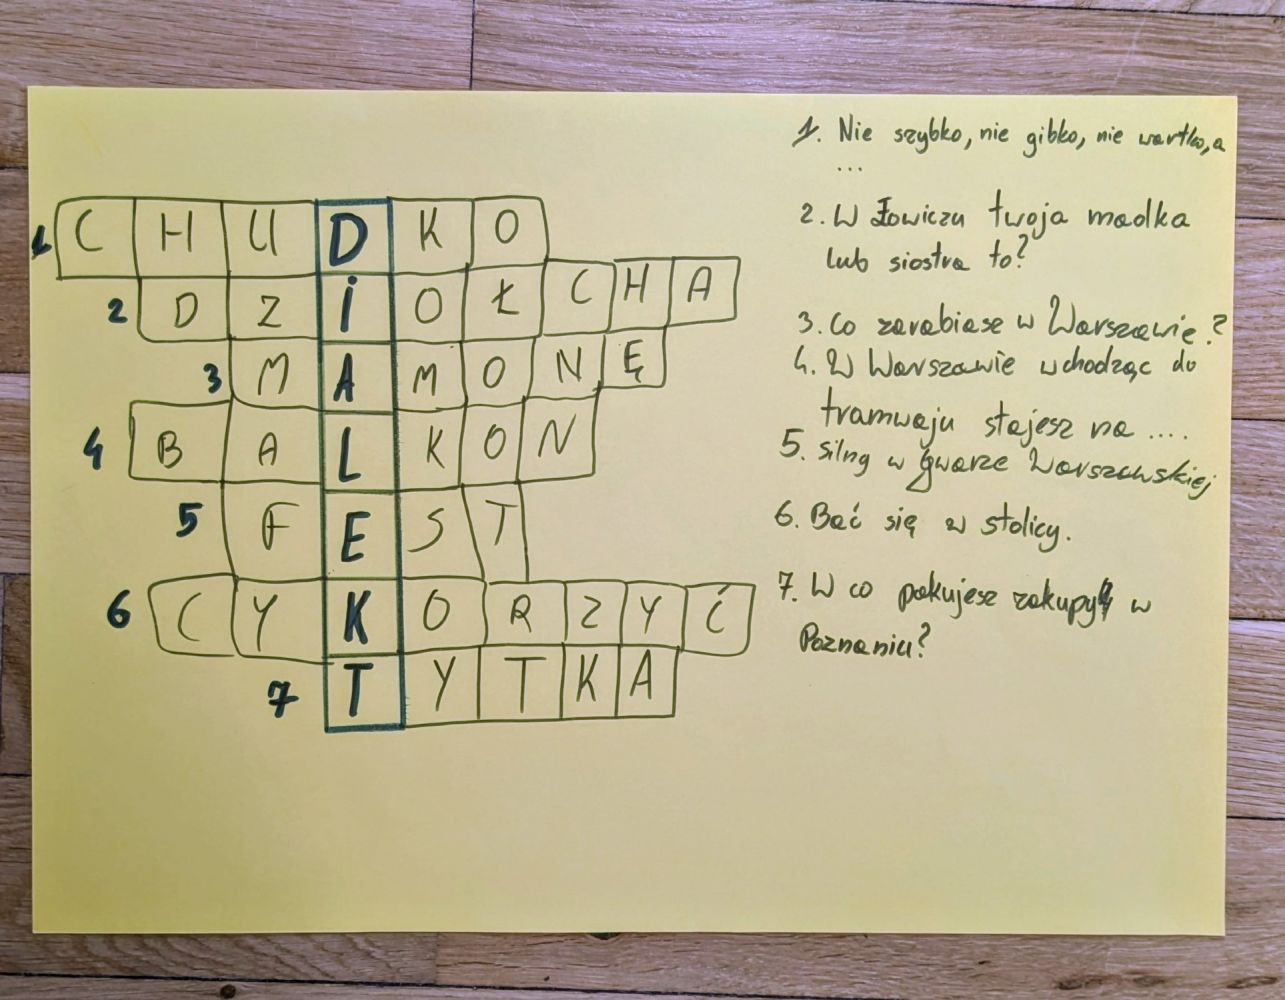 1 C H U D K O
2 D Z I O Ł C H A
3 M A M O N Ę
4 B A L K O N
5 F E S T
6 C Y K O R Z Y Ć
7 T Y T K A
1. Nie szybko, nie gibko, nie wartko, a
...
2. W Łowiczu twoja madka
lub siostra to?
3. Co zarabiasz w Warszawie?
4. W Warszawie wchodząc do
tramwaju stajesz na ....
5. Silny w gwarze Warszawskiej
6. Bać się w stolicy.
7. W co pakujesz zakupy w
Poznaniu?